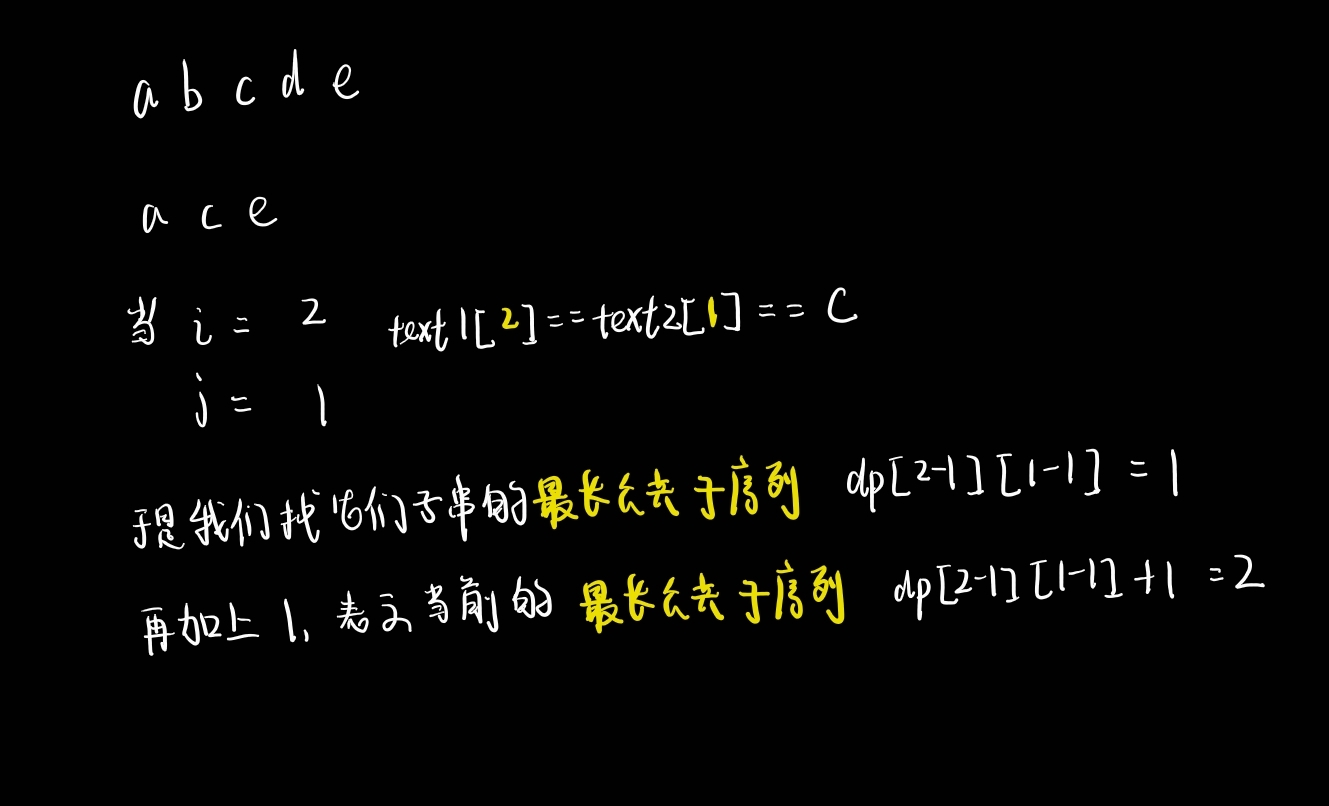 a b c d e
a c e
当 i = 2 text1[2]==text2[1]== C
j = 1
于是我们找它们子串的最长公共子序列 dp[2-1][1-1] = 1
再加上 1, 表示当前的 最长公共子序列 dp[2-1][1-1]+1 =2